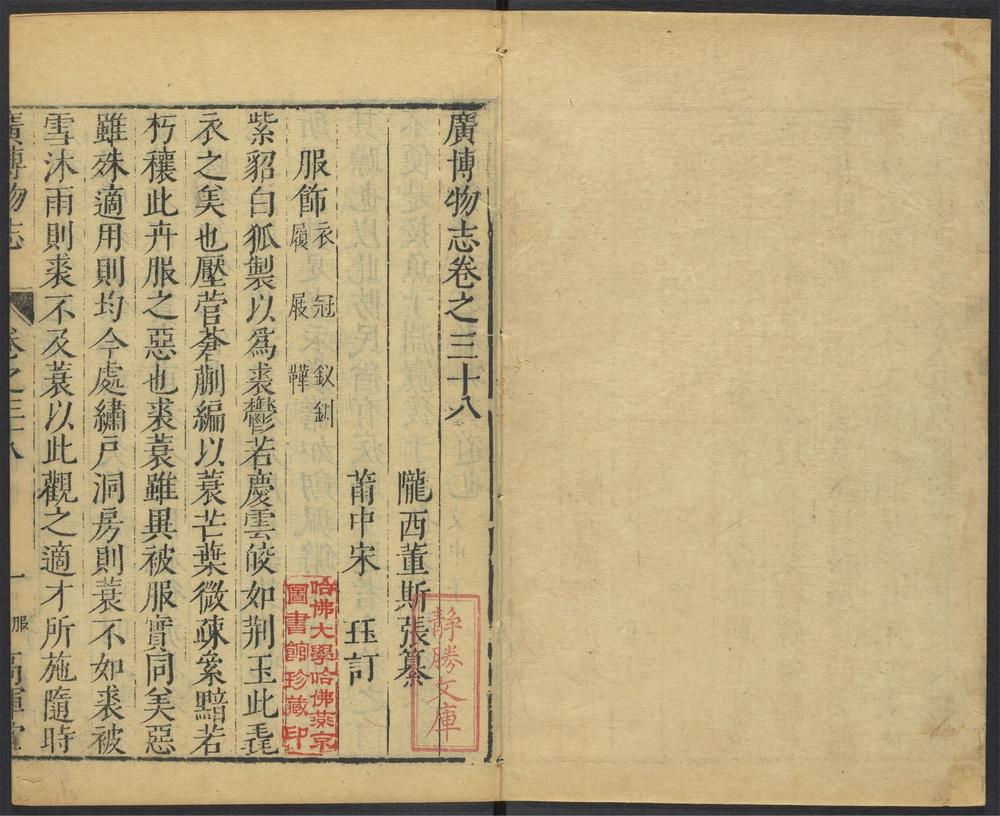 廣博物志卷之三十八
隴西董斯張纂
莆中宋 珏訂
服飾 衣 冠 釵釧
履 屐 鞾
紫貂白狐製以為裘鬱若慶雲皎如荆玉此毳
衣之美也壓菅蒼蒯編以蓑芒葉微疎黯若
朽穰此卉服之惡也裘蓑雖異被服實同美惡
雖殊適用則均今處繡戸洞房則蓑不如裘被
雪沐雨則裘不及蓑以此觀之適才所施隨時
廣博物志 卷之三十八 一 服 高暉堂
靜勝文庫
哈佛大學哈佛燕京
圖書館珍藏印